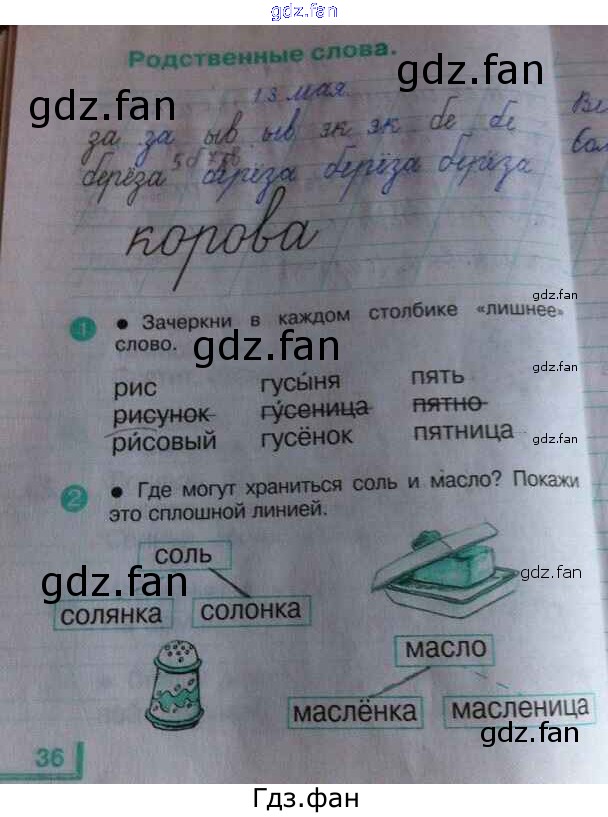 gdz.fan
Родственные слова.
gdz.fan
gdz.fan
13 мая
за за ыв ыв зк зк бе бе
берёза берёза берёза берёза
корова
gdz.fan
1 • Зачеркни в каждом столбике «лишнее» слово.
gdz.fan
рис гусы́ня пять
gdz.fan
рисунок гу́сеница пятно
ри́совый гусёнок пятница
gdz.fan
2 • Где могут храниться соль и масло? Покажи
это сплошной линией.
соль
gdz.fan
gdz.fan
солянка солонка
масло
маслёнка масленица
gdz.fan
36
Гдз.фан